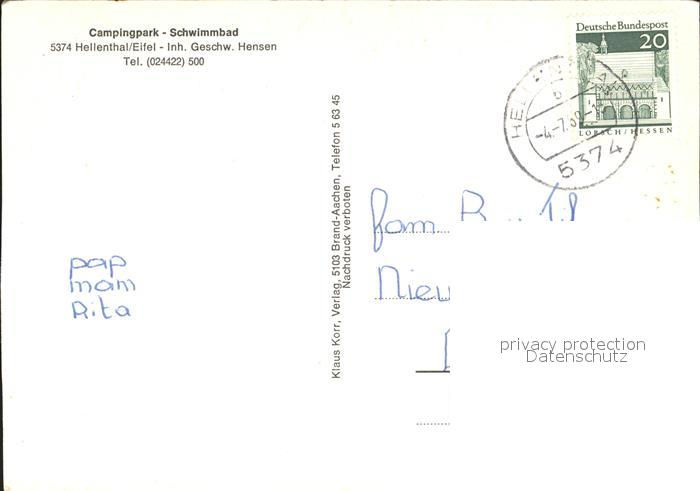 Campingpark - Schwimmbad
5374 Hellenthal/Eifel - Inh. Geschw. Hensen
Tel. (024422) 500
Deutsche Bundespost
20
LORSCH/HESSEN
b
-4.-7.69-
5374
Klaus Korr, Verlag, 5103 Brand-Aachen, Telefon 5 63 45
Nachdruck verboten
pap
mam
Rita
fam.
Nieu
privacy protection
Datenschutz